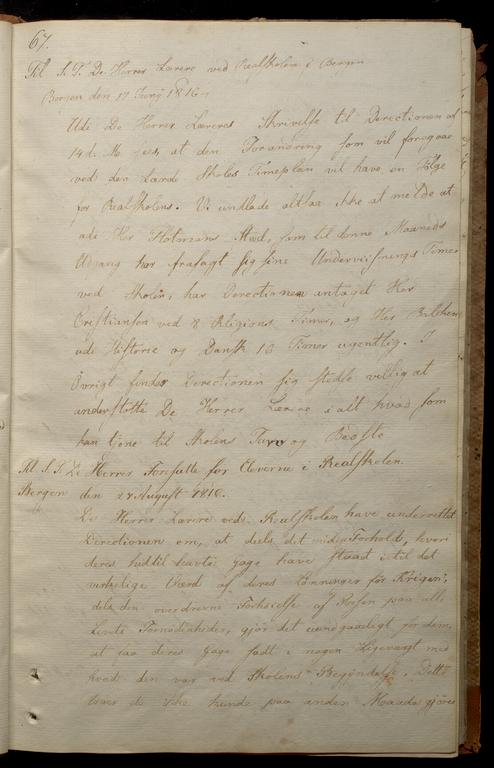 67.
Til S. T. De Herrer Lærere ved Realskolen i Bergen
Bergen den 17 Junÿ 1816
Udi De Herrer Læreres Skrivelse til Directionen af
14d. M. sees, at den Forandring som vil foregaae
ved den Lærde Skoles Timeplan vil have en Følge
for Realskolens. Vi undlade altsaa ikke at melde at
udi Her Stæd, som til denne Maaneds
Udgang har frasagt sig sine Underviisnings Timer
ved Skolen, har Directionen antaget Her
Cristiansen ved 8 Religions Timer, og Her
udi Historie og Dansk 10 Timer ugentlig. I
Øvrigt finder Directionen sig stedse villig at
understøtte De Herrer Lærere i alt hvad som
kan tjene til Skolens Tarv og Bedste
Til S. T. De Herrer Forsatte for Eleverne i Realskolen.
Bergen den 28 August 1816.
De Herrer Lærere ved Realskolen have underrettet
Directionen om, at deels det Forhold, hvori
deres hidtil havte Gage have staaet i til det
virkelige Værd af deres Lønninger før Krigen,
dels den overdrevne Forhøielse af Prisen paa alle
Livets Fornødenheder, gjør det uundgaaeligt for dem,
at faa deres Gage sadt i nogen Ligevægt med
hvad den var ved Skolens Begyndelse. Dette
troer de ikke kunde paa anden Maade gjøres